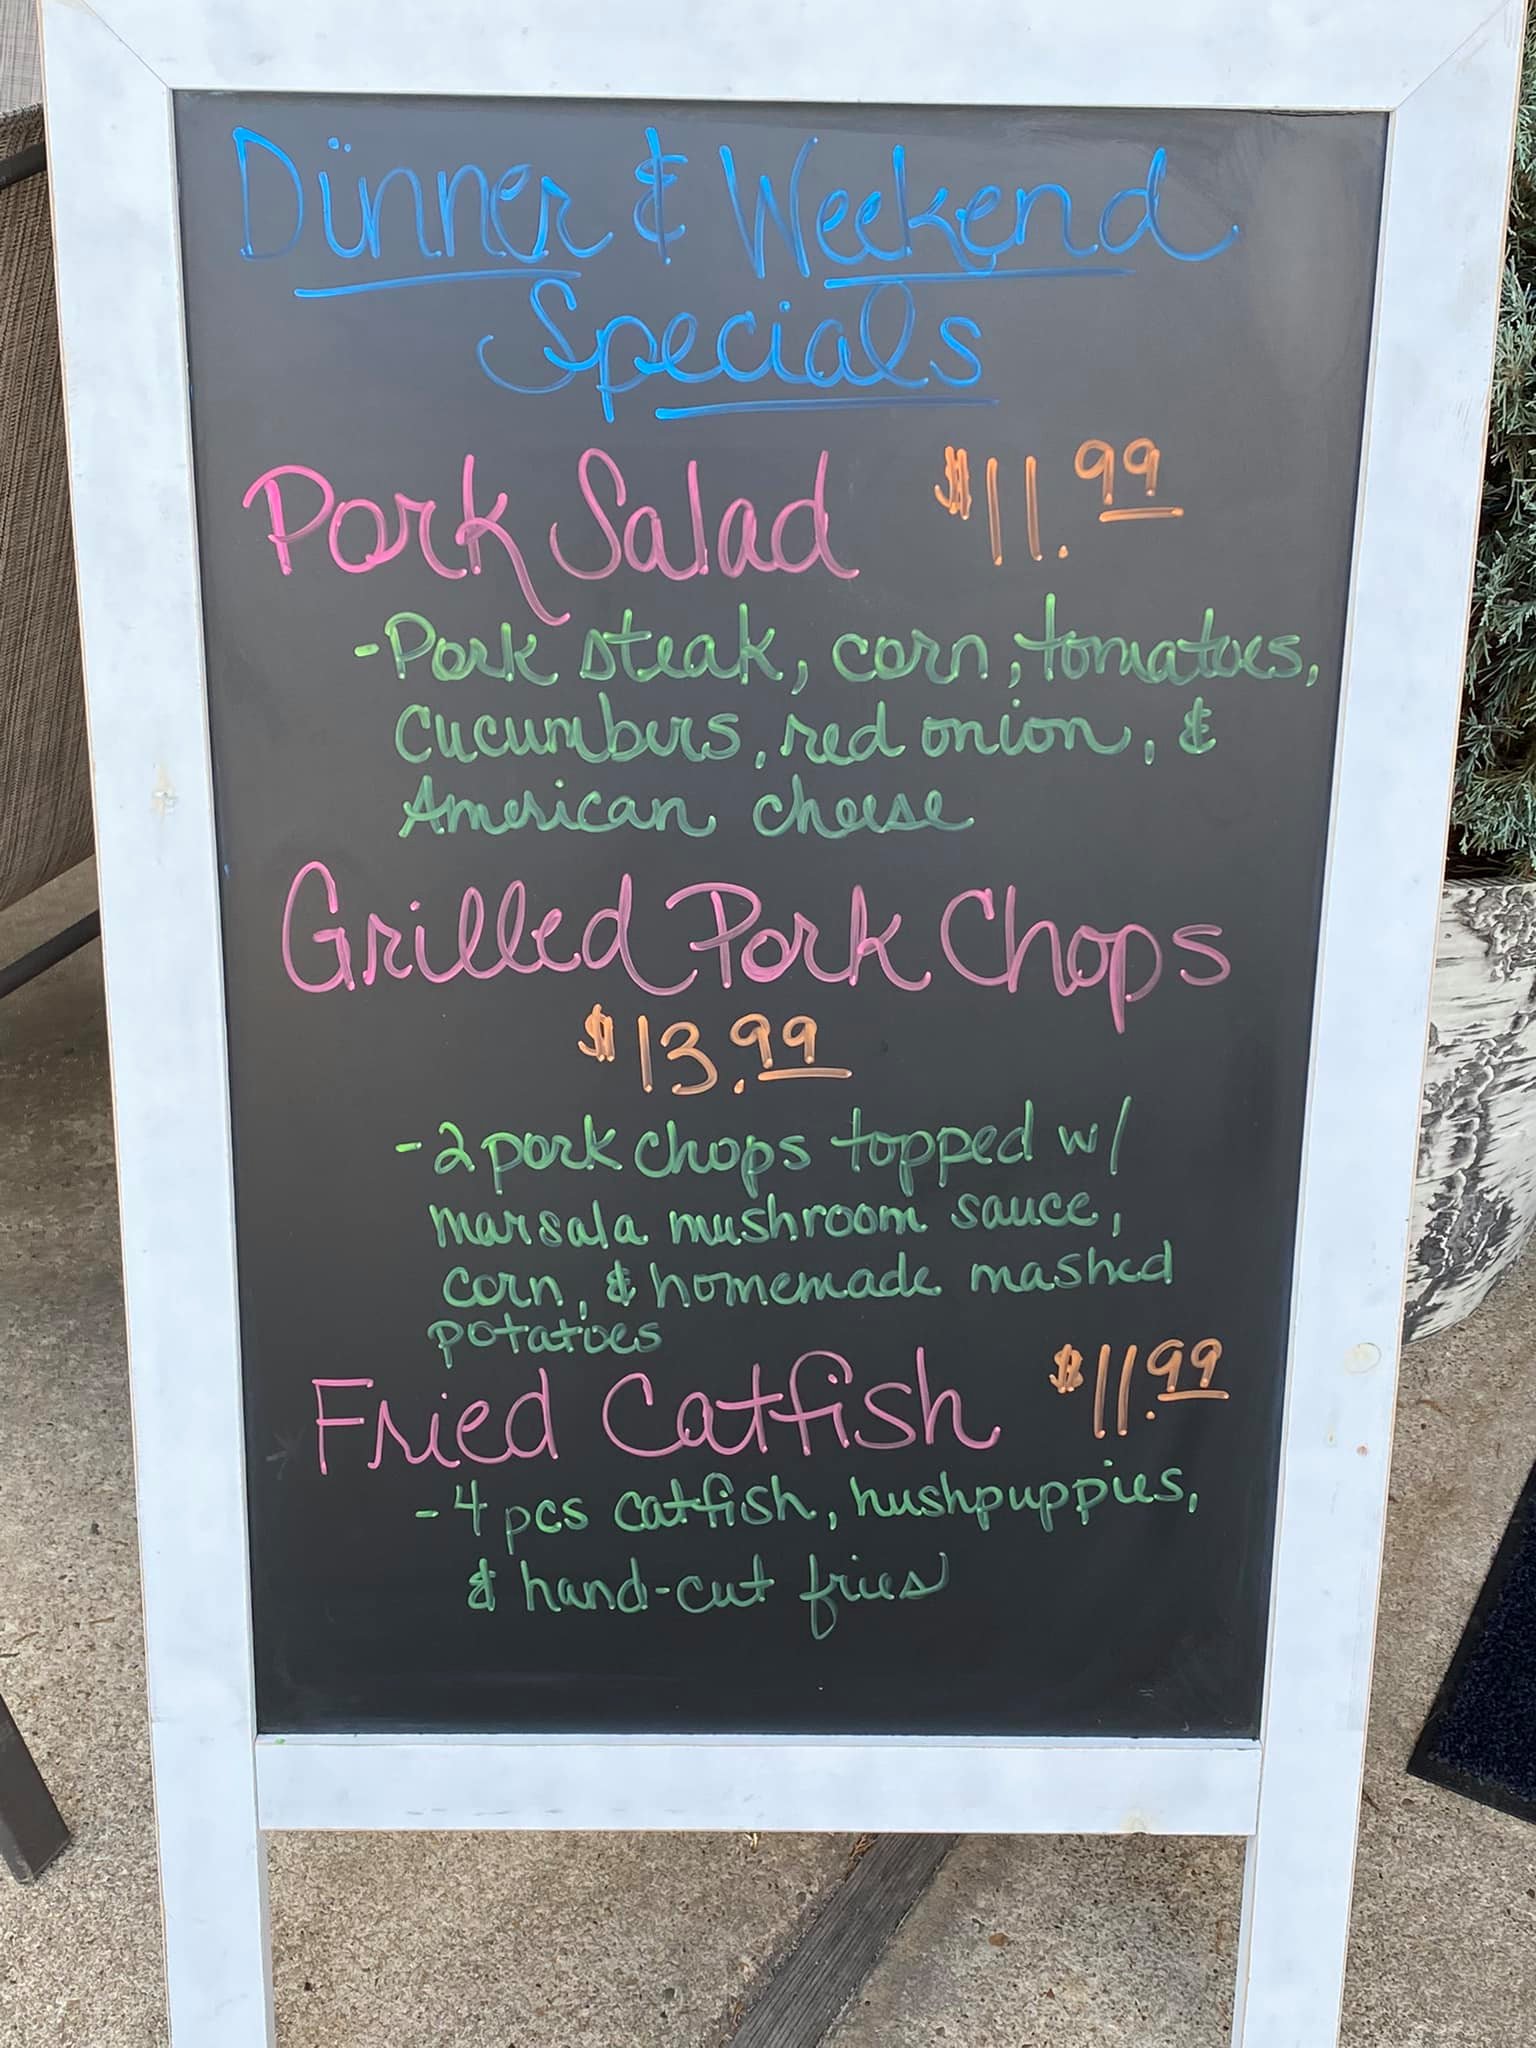 Dinner & Weekend
Specials
Pork Salad $11.99
-Pork steak, corn, tomatoes,
Cucumbers, red onion, &
American cheese
Grilled Pork Chops
$13.99
-2 pork chops topped w/
marsala mushroom sauce,
corn, & homemade mashed
potatoes
Fried Catfish $11.99
-4 pcs catfish, hushpuppies,
& hand-cut fries